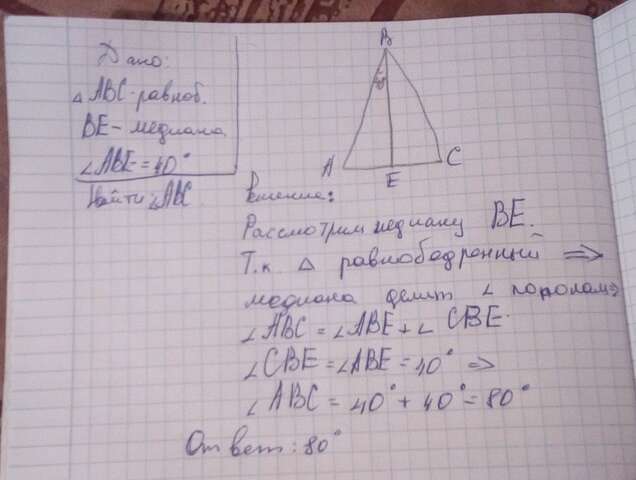 Дано:
△ABC-равноб.
BE-медиана
∠ABE=40°
Найти:∠ABC
B
A
E
C
Решение:
Рассмотрим медиану BE.
Т.к. △ равнобедренный ⇒
медиана делит ∠ пополам⇒
∠ABC=∠ABE+∠CBE.
∠CBE=∠ABE=40° ⇒
∠ABC=40°+40°=80°
Ответ:80°